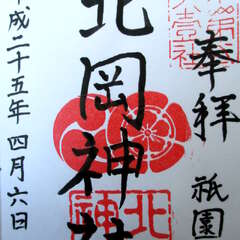 奉拝 祇園
北岡神社
平成二十五年四月六日